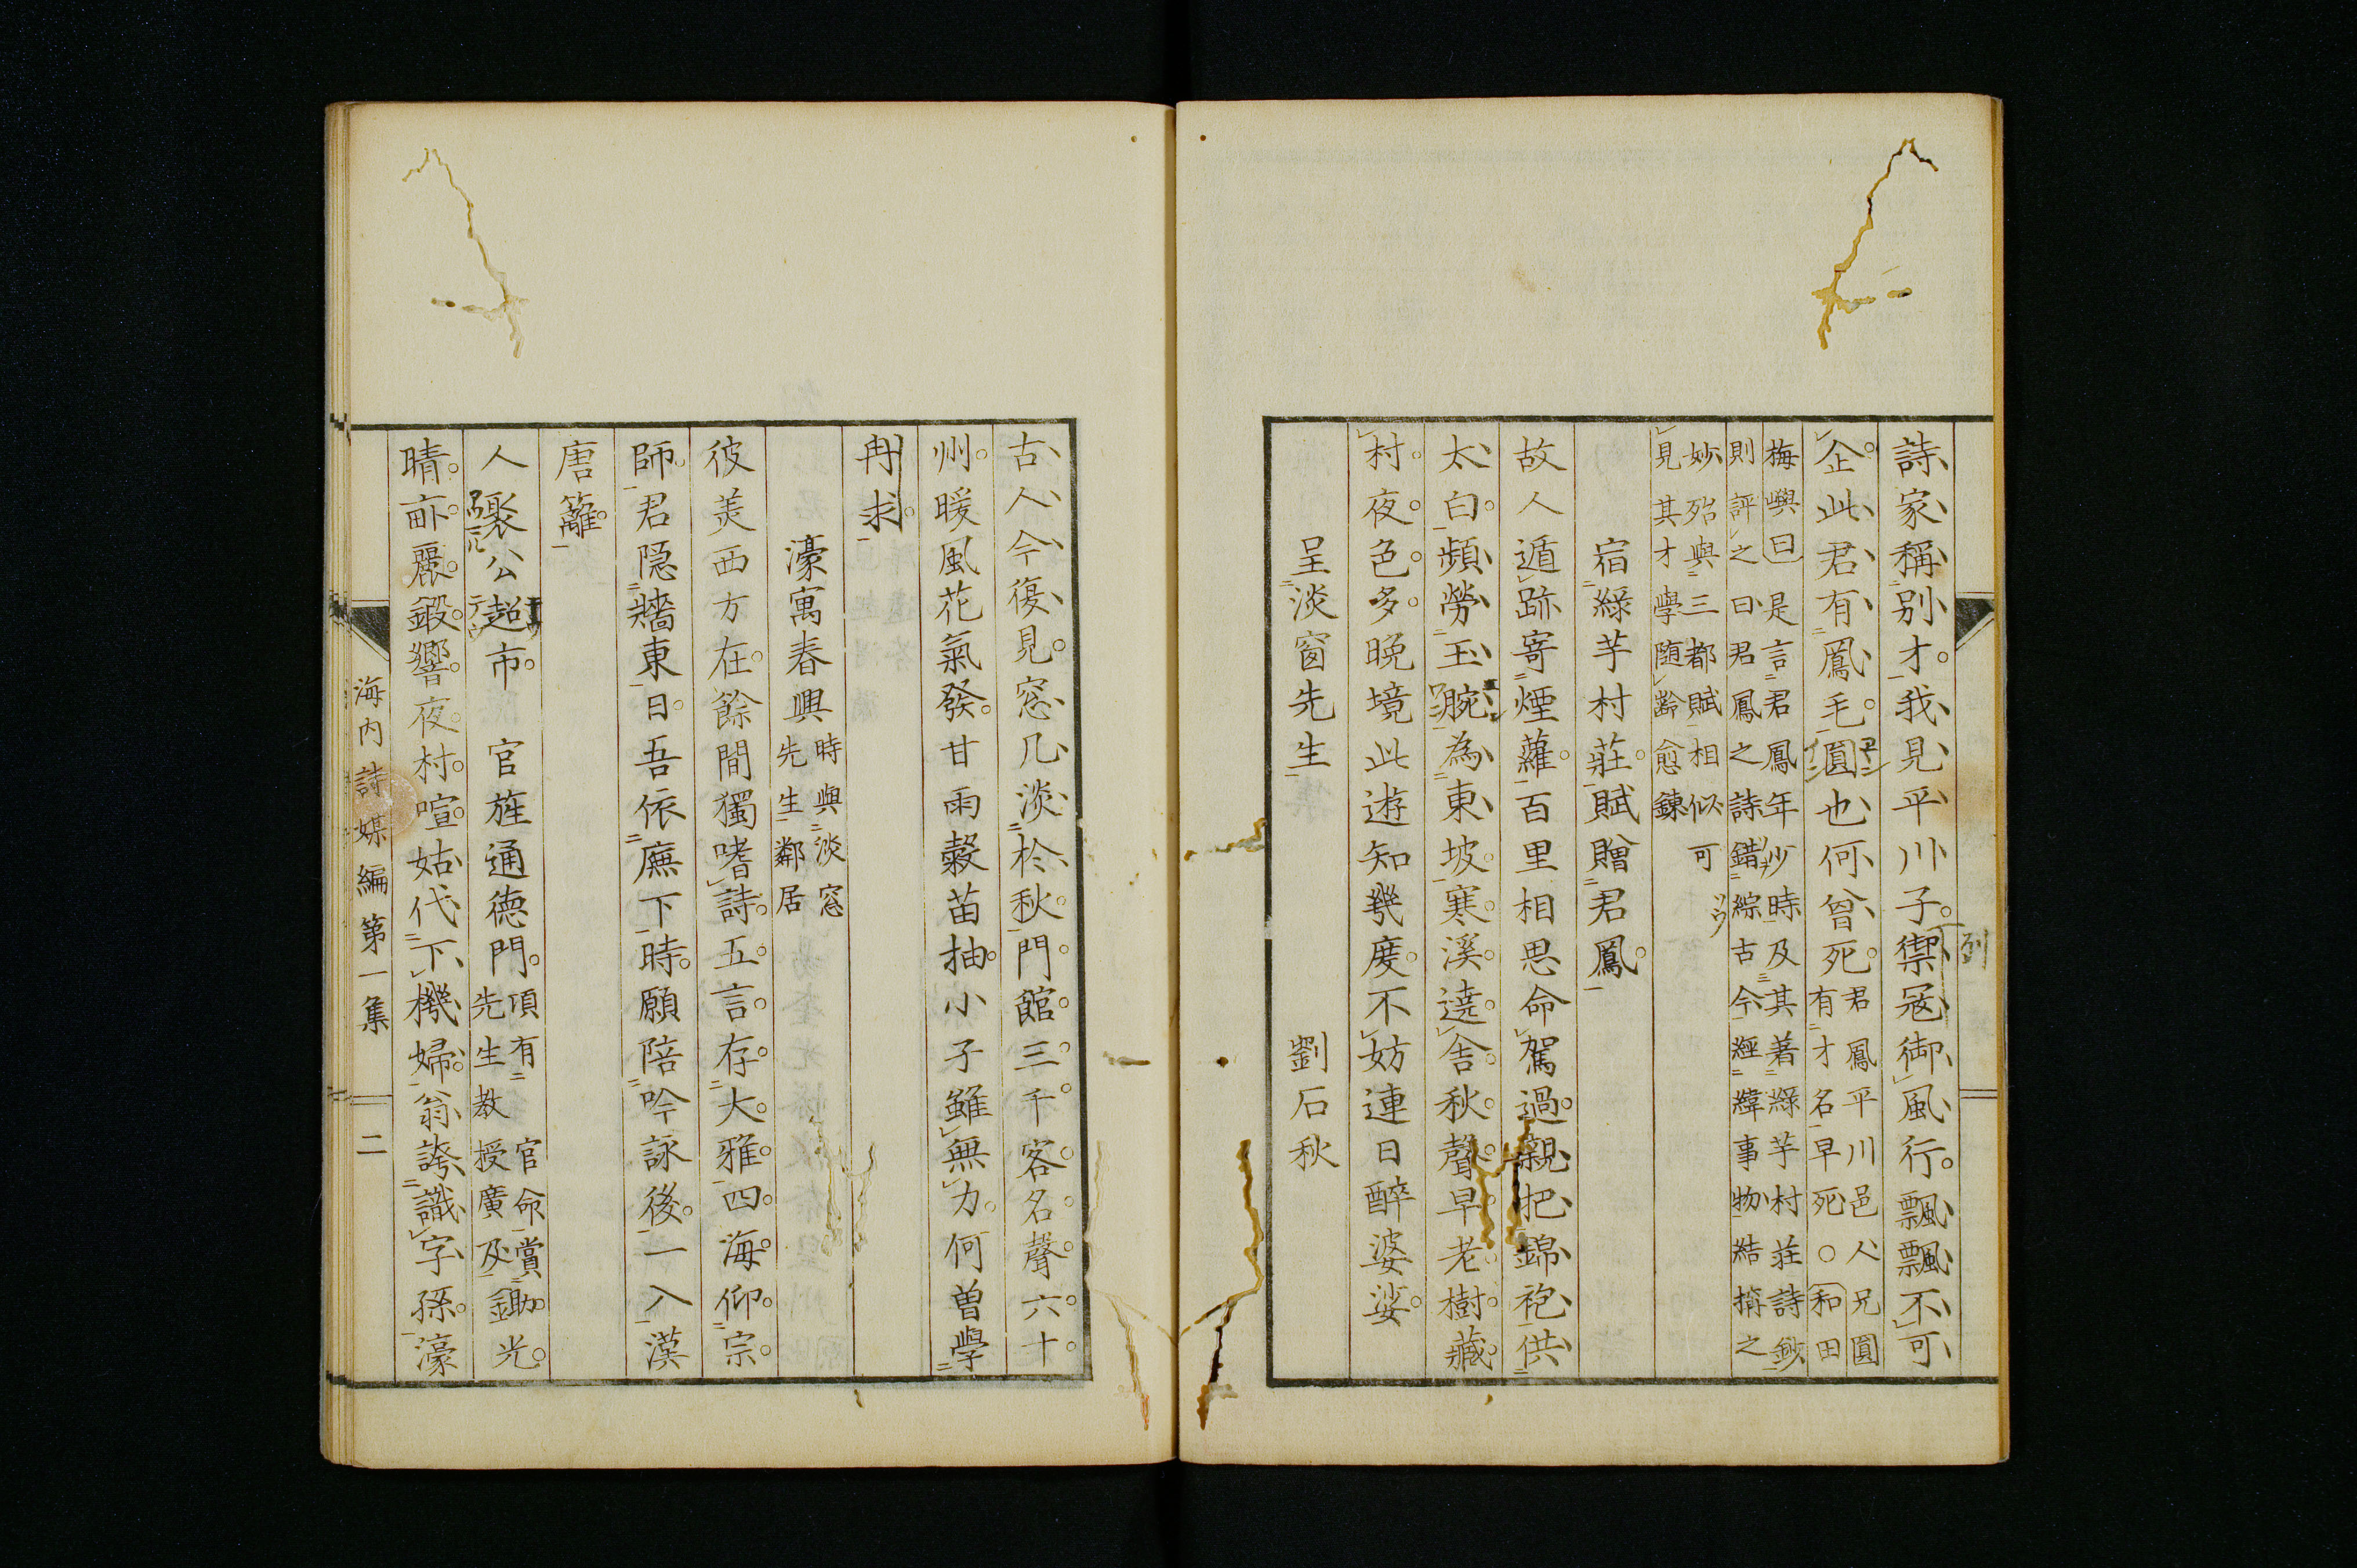 詩家稱別才我見平川子禦寇御風行飄飄不可
企此君有鳳毛圓也何曾死
君鳳平川邑人兄圓
有才名早死○和田
梅嶼曰是言君鳳年少時及其著綠芋村莊詩鈔
則評之曰君鳳之詩錯綜古今經緯事物結撰之
妙殆與三都賦相似可
見其才學隨齡愈鍊
宿綠芋村莊賦贈君鳳
故人遁跡寄煙蘿百里相思命駕過親把錦袍供
太白頻勞玉腕為東坡寒溪遶舎秋聲早老樹藏
村夜色多晩境此遊知幾度不妨連日醉婆娑
呈淡窗先生 劉石秋
古人今復見窓几淡於秋門館三千客名聲六十
州暖風花氣發甘雨穀苗抽小子雖無力何曽學
冉求
濠寓春興
時與淡窓
先生鄰居
彼美西方在餘間獨嗜詩五言存大雅四海仰宗
師君隠牆東日吾依廡下時願陪吟詠後一入漢
唐籬
人聚公超市 官旌通德門
項有 官命賞
先生教授廣及
鋤光
晴畝麗鍛響夜村喧姑代下機婦翁誇識字孫濠
海内詩媒編第一集 二